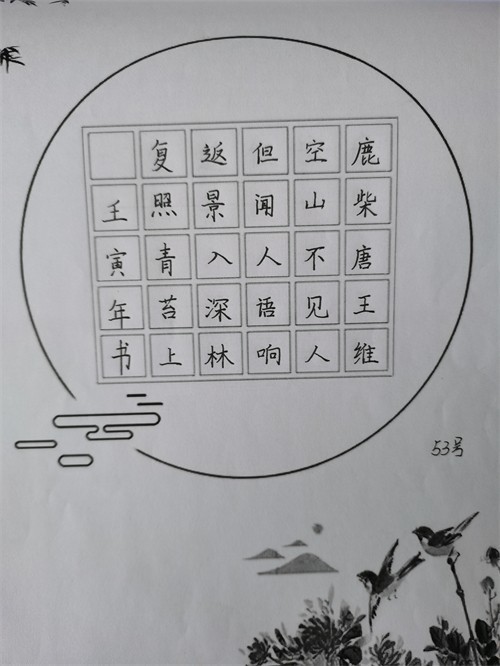 鹿柴唐王维
空山不见人
但闻人语响
返景入深林
复照青苔上
壬寅年书
53号